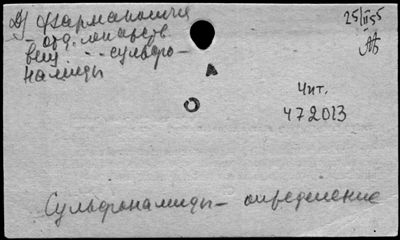 Фармакология
- отд. лекарств.
вещ -- сульфо-
намиды
25/II 55
Чит.
472013
Сульфонамиды - определение